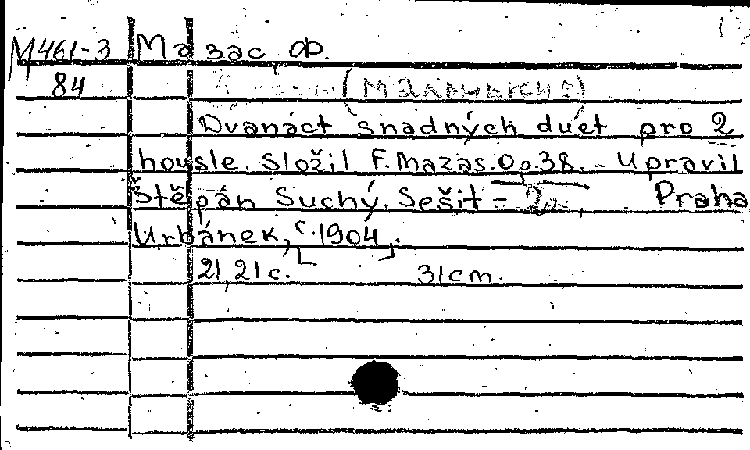 М461-3 Мазас, Ф.
84
Dvanáct snadných duet pro 2
housle. Složil F. Mazas. Op. 38. - Upravil
Štěpán Suchý. Sešit - 2. Praha
Urbánek, [1904].
21, 21 с. 31 cm.